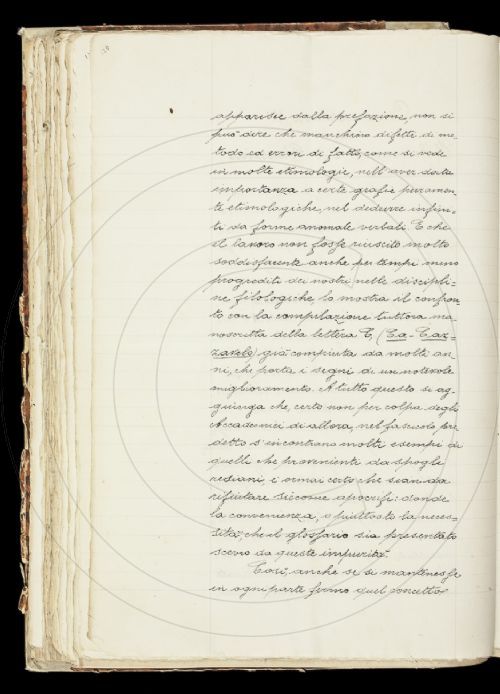 apparisce dalla prefazione, non si
può dire che manchino difetti di me-
todo ed errori di fatto, come si vede
in molte etimologie, nell'aver data
importanza a certe grafie puramen-
te etimologiche, nel dedurre infini-
ti da forme anomale verbali. E che
il lavoro non fosse riuscito molto
soddisfacente anche pei tempi meno
progrediti dei nostri nelle discipli-
ne filologiche, lo mostra il confron-
to con la compilazione tuttora ma-
noscritta della lettera C, (Ca-Caz-
zavela) già compiuta da molti an-
ni, che porta i segni di un notevole
miglioramento. A tutto questo si ag-
giunga che, certo non per colpa degli
Accademici di allora, nel fascicolo pre
detto s'incontrano molti esempi di
quelli che provenienti da spogli
rediani, è ormai certo che sian da
rifiutare siccome apocrifi: donde
la convenienza, o piuttosto la neces-
sità, che il glossario sia presentato
scevro da queste impurità.
Così, anche se si mantenesse
in ogni parte fermo quel concetto